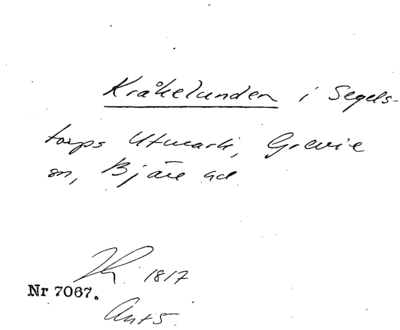 Kråkelunden i Segels-
torps Utmark, Grevie
sn, Bjäre hd
1817
Nr 7067.
Ant 5.